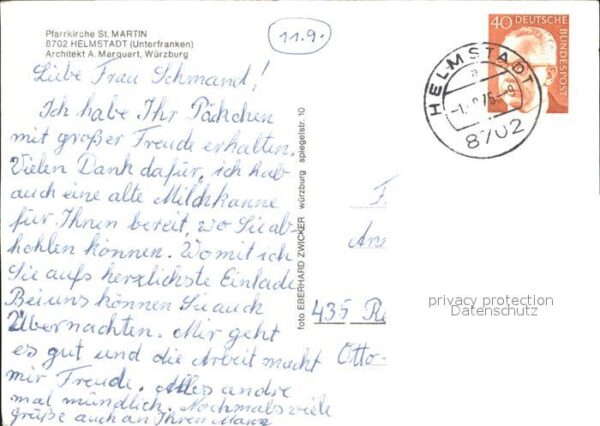 Pfarrkirche St. MARTIN
8702 HELMSTADT (Unterfranken)
Architekt A. Marquart, Würzburg
11.9.
40 DEUTSCHE
BUNDESPOST
HELMSTADT
a
8702
Liebe Frau Schmand!
Ich habe Ihr Päckchen
mit großer Freude erhalten.
Vielen Dank dafür, ich hab
auch eine alte Milchkanne
für Ihnen bereit, wo Sie ab-
hohlen können. Womit ich
Sie aufs herzlichste Einlade
Bei uns können Sie auch
Übernachten. Mir geht
es gut und die Arbeit macht
mir Freude. Alles andre
mal mündlich. Nochmals viele
grüße auch an Ihren Mann
foto EBERHARD ZWICKER würzburg spiegelstr. 10
435 Re
Otto-
privacy protection
Datenschutz